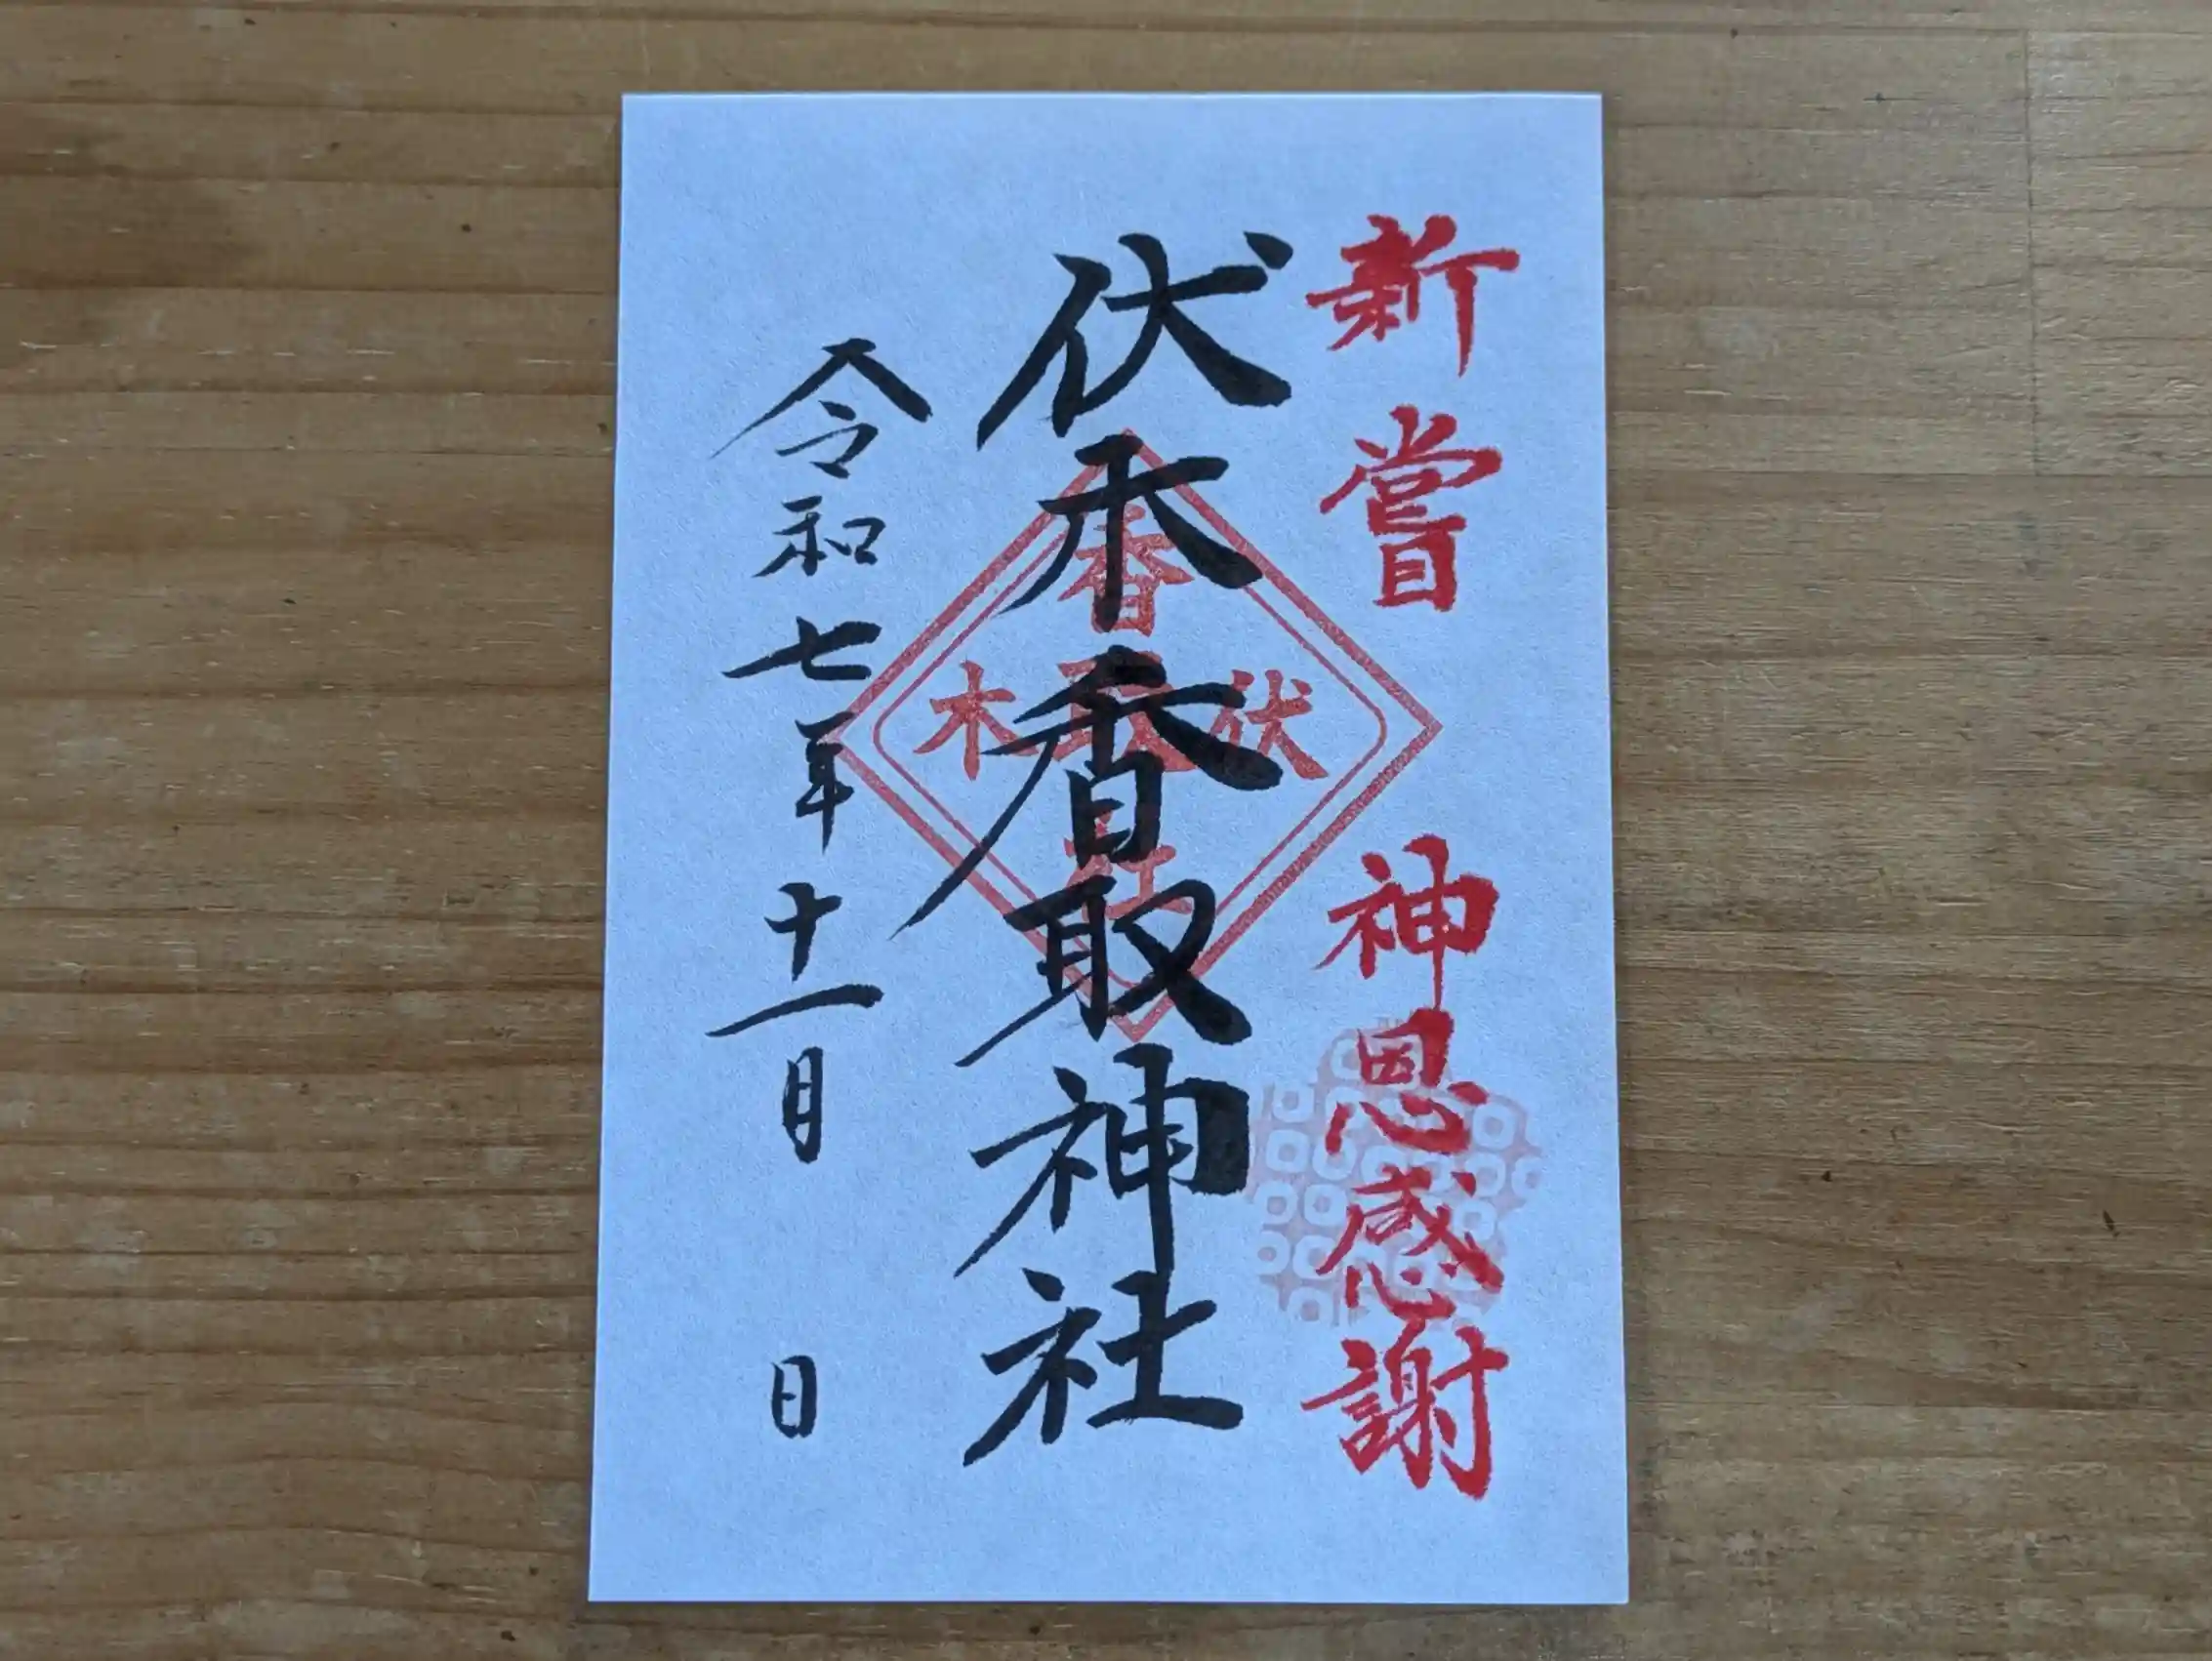 新嘗 神恩感謝
伏木香取神社
令和七年十一月 日
香
伏 取 木
社